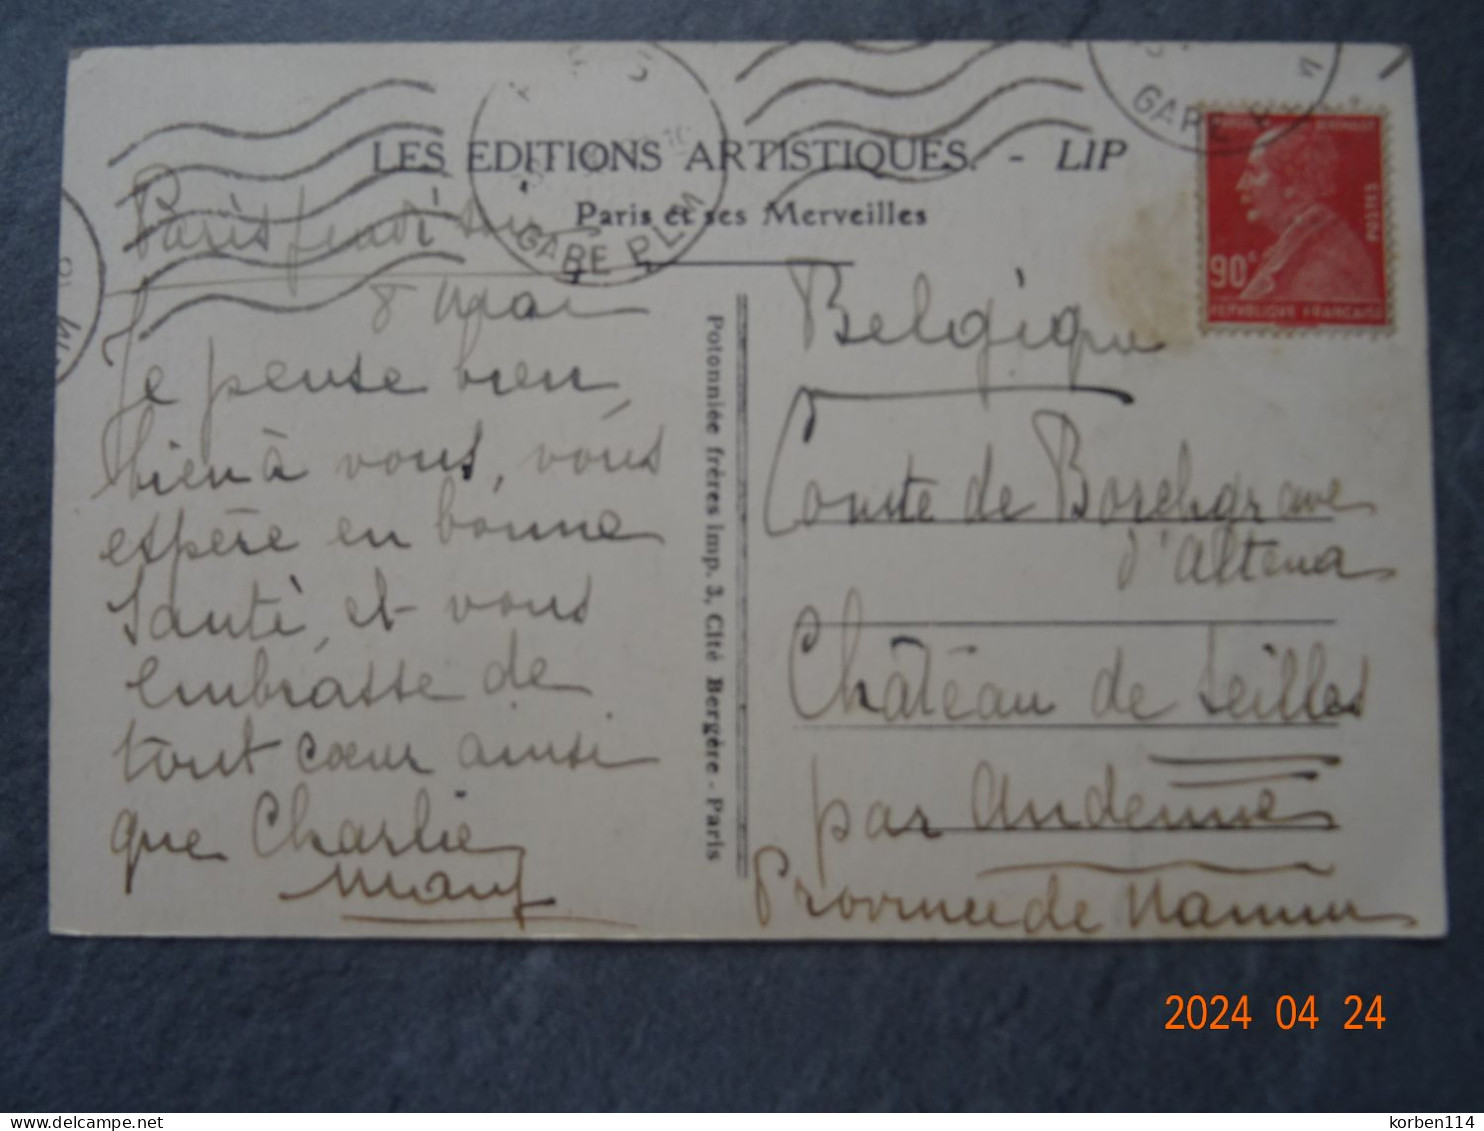 LES EDITIONS ARTISTIQUES. - LIP
Paris et ses Merveilles
GARE P.L.M
GARE P
90c
POSTES
REPUBLIQUE FRANCAISE
Paris jeudi
8 Mai
Je pense bien,
bien à vous, vous
espère en bonne
santé, et vous
embrasse de
tout cœur ainsi
que Charlie
Potonniée frères imp. 3, Cité Bergère - Paris
Belgique
Comte de Borchgrave
d'Altena
Château de Seilles
par Andenne
Province de Namur
2024 04 24
delcampe.net
korben114